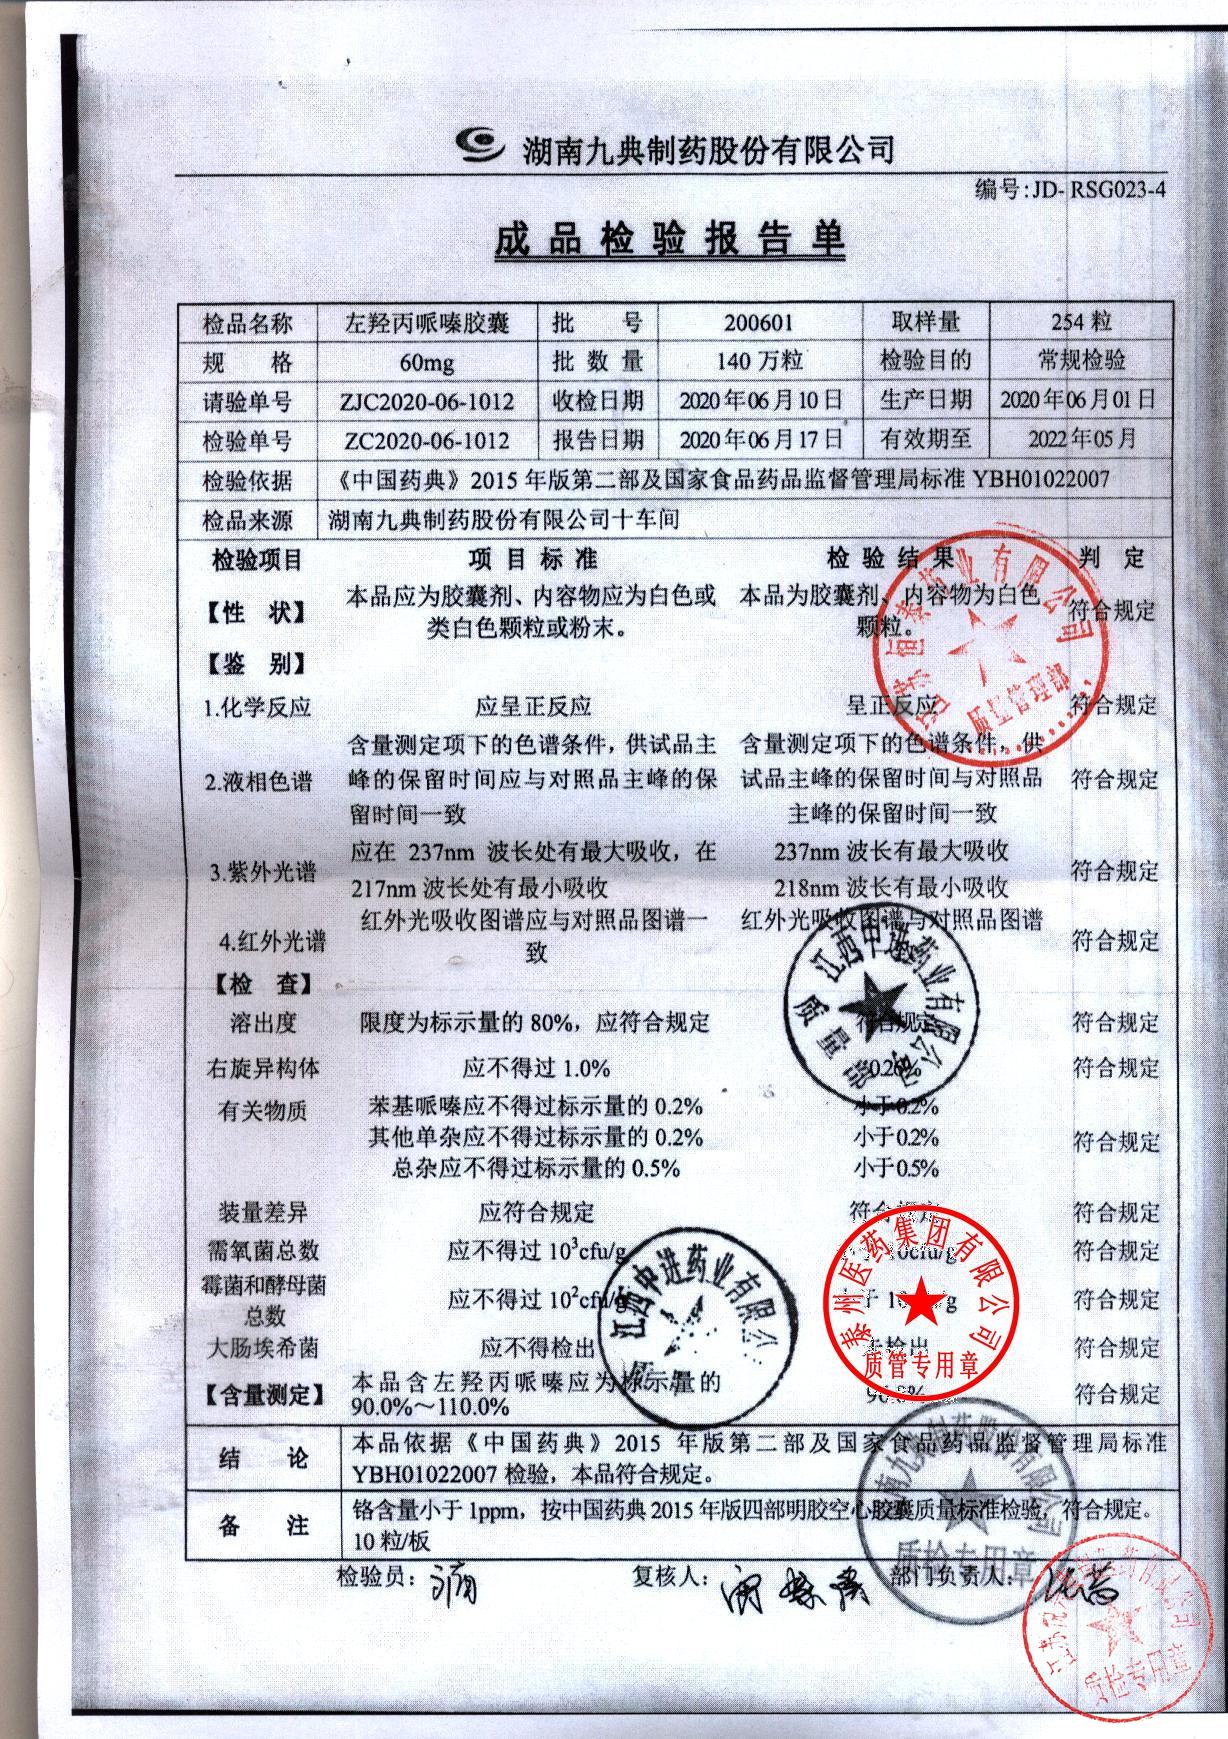 湖南九典制药股份有限公司
编号:JD- RSG023-4
成品检验报告单
检品名称 左羟丙哌嗪胶囊 批号 200601 取样量 254 粒
规格 60mg 批数量 140 万粒 检验目的 常规检验
请验单号 ZJC2020-06-1012 收检日期 2020 年 06 月 10 日 生产日期 2020 年 06 月 01 日
检验单号 ZC2020-06-1012 报告日期 2020 年 06 月 17 日 有效期至 2022 年 05 月
检验依据 《中国药典》2015 年版第二部及国家食品药品监督管理局标准 YBH01022007
检品来源 湖南九典制药股份有限公司十车间
检验项目 项目标准 检验结果 判定
【性状】 本品应为胶囊剂、内容物应为白色或 本品为胶囊剂、内容物为白色 符合规定
类白色颗粒或粉末。 颗粒。
【鉴别】
1.化学反应 应呈正反应 呈正反应 符合规定
含量测定项下的色谱条件，供试品主 含量测定项下的色谱条件，供
2.液相色谱 峰的保留时间应与对照品主峰的保 试品主峰的保留时间与对照品 符合规定
留时间一致 主峰的保留时间一致
3.紫外光谱 应在 237nm 波长处有最大吸收，在 237nm 波长有最大吸收 符合规定
217nm 波长处有最小吸收 218nm 波长有最小吸收
4.红外光谱 红外光吸收图谱应与对照品图谱一 红外光吸收图谱与对照品图谱 符合规定
致
【检查】
溶出度 限度为标示量的 80%，应符合规定 符合规定 符合规定
右旋异构体 应不得过 1.0% 符合规定
有关物质 苯基哌嗪应不得过标示量的 0.2% 小于0.2%
其他单杂应不得过标示量的 0.2% 小于0.2% 符合规定
总杂应不得过标示量的 0.5% 小于0.5%
装量差异 应符合规定 符合规定 符合规定
需氧菌总数 应不得过 10³cfu/g 符合规定
霉菌和酵母菌 应不得过 10²cfu/g 符合规定
总数
大肠埃希菌 应不得检出 未检出 符合规定
【含量测定】 本品含左羟丙哌嗪应为标示量的 符合规定
90.0%～110.0%
结论 本品依据《中国药典》2015 年版第二部及国家食品药品监督管理局标准
YBH01022007 检验，本品符合规定。
备注 铬含量小于 1ppm，按中国药典 2015 年版四部明胶空心胶囊质量标准检验，符合规定。
10 粒/板
检验员： 复核人： 部门负责人：
药业有限公司
质量管理部
江西中进药业有限公司
江西中进药业有限公
泰州医药集团有限公司
质管专用章
南九典制药股份有限公司
质检专用章
质检专用章